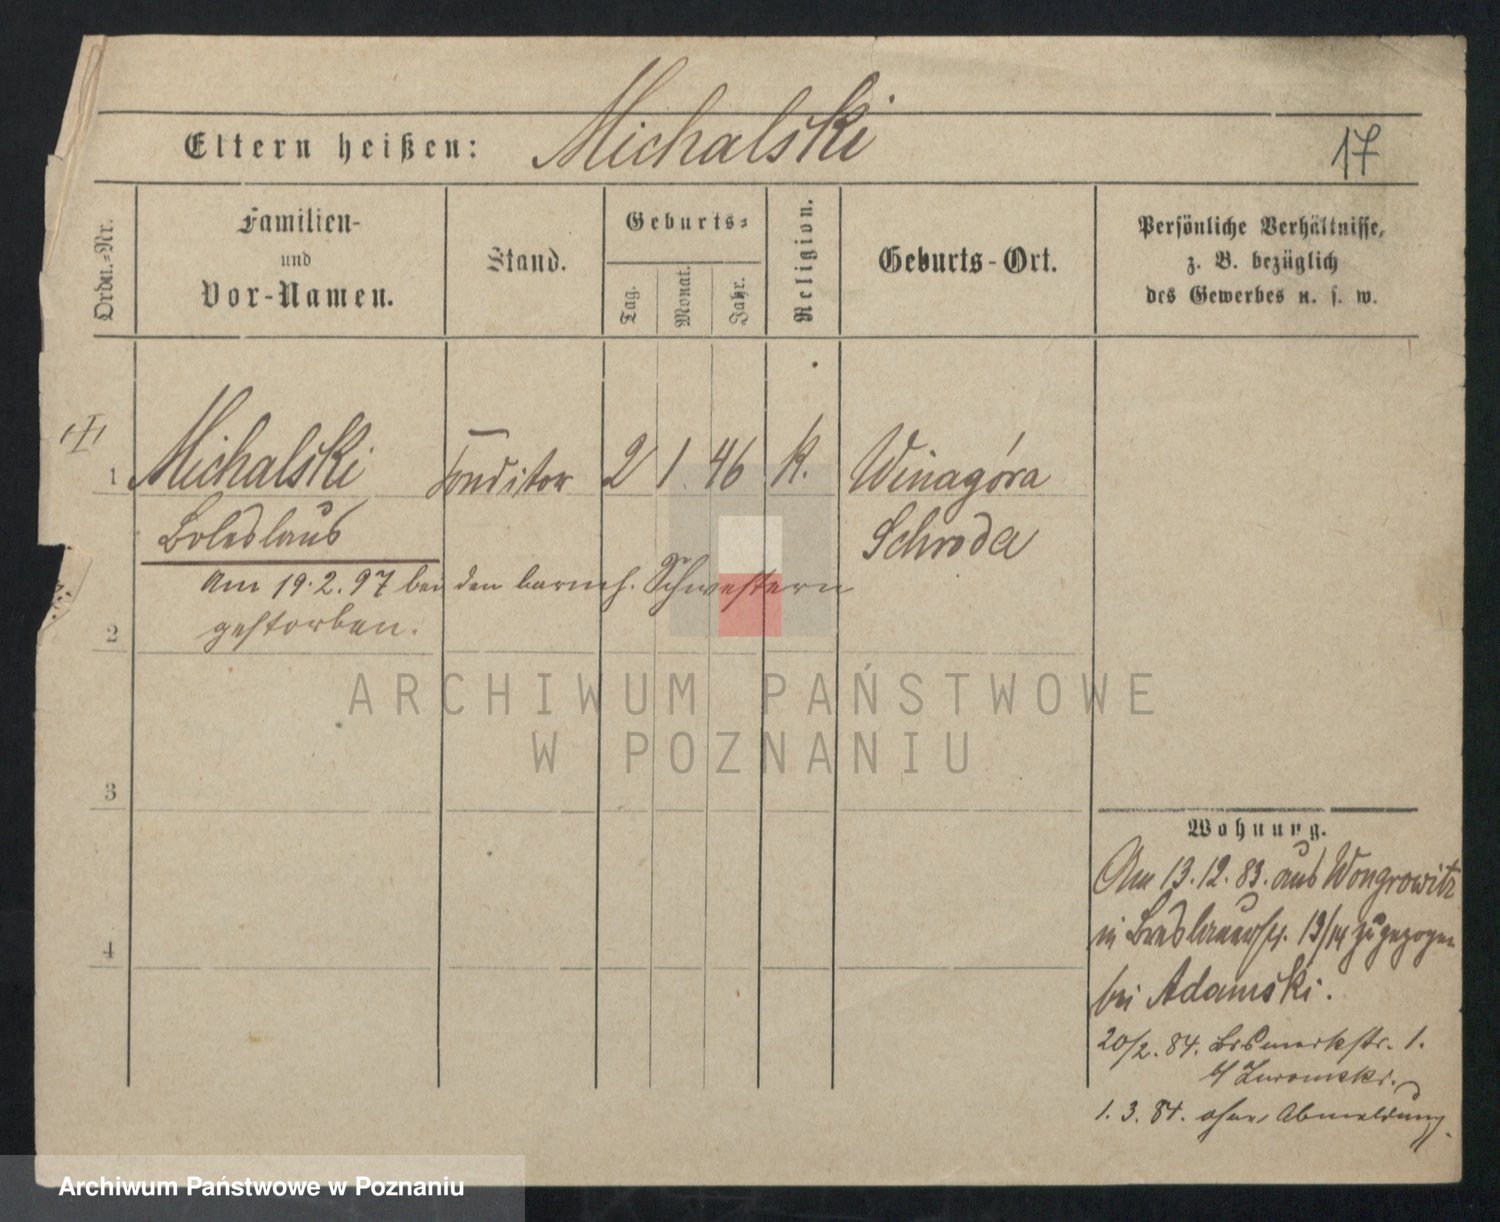 Eltern heißen: Michalski
17
Ordn.-Nr.
Familien-
und
Vor-Namen.
Stand.
Geburts-
Tag.
Monat.
Jahr.
Religion.
Geburts-Ort.
Persönliche Verhältnisse,
z. B. bezüglich
des Gewerbes u. s. w.
1 Michalski Conditor 2 1 46 K. Winagóra
Boleslaus Schroda
Am 19.2.97 bei den barmh. Schwestern
2 gestorben.
3
4
Wohnung.
Am 13.12.83. aus Wongrowitz
in Breslauerstr. 13/14 zugezogen
bei Adamski.
20/2. 84. Bismarkstr. 1.
b/
1. 3. 84. ohne Abmeldung.
ARCHIWUM PAŃSTWOWE
W POZNANIU
Archiwum Państwowe w Poznaniu